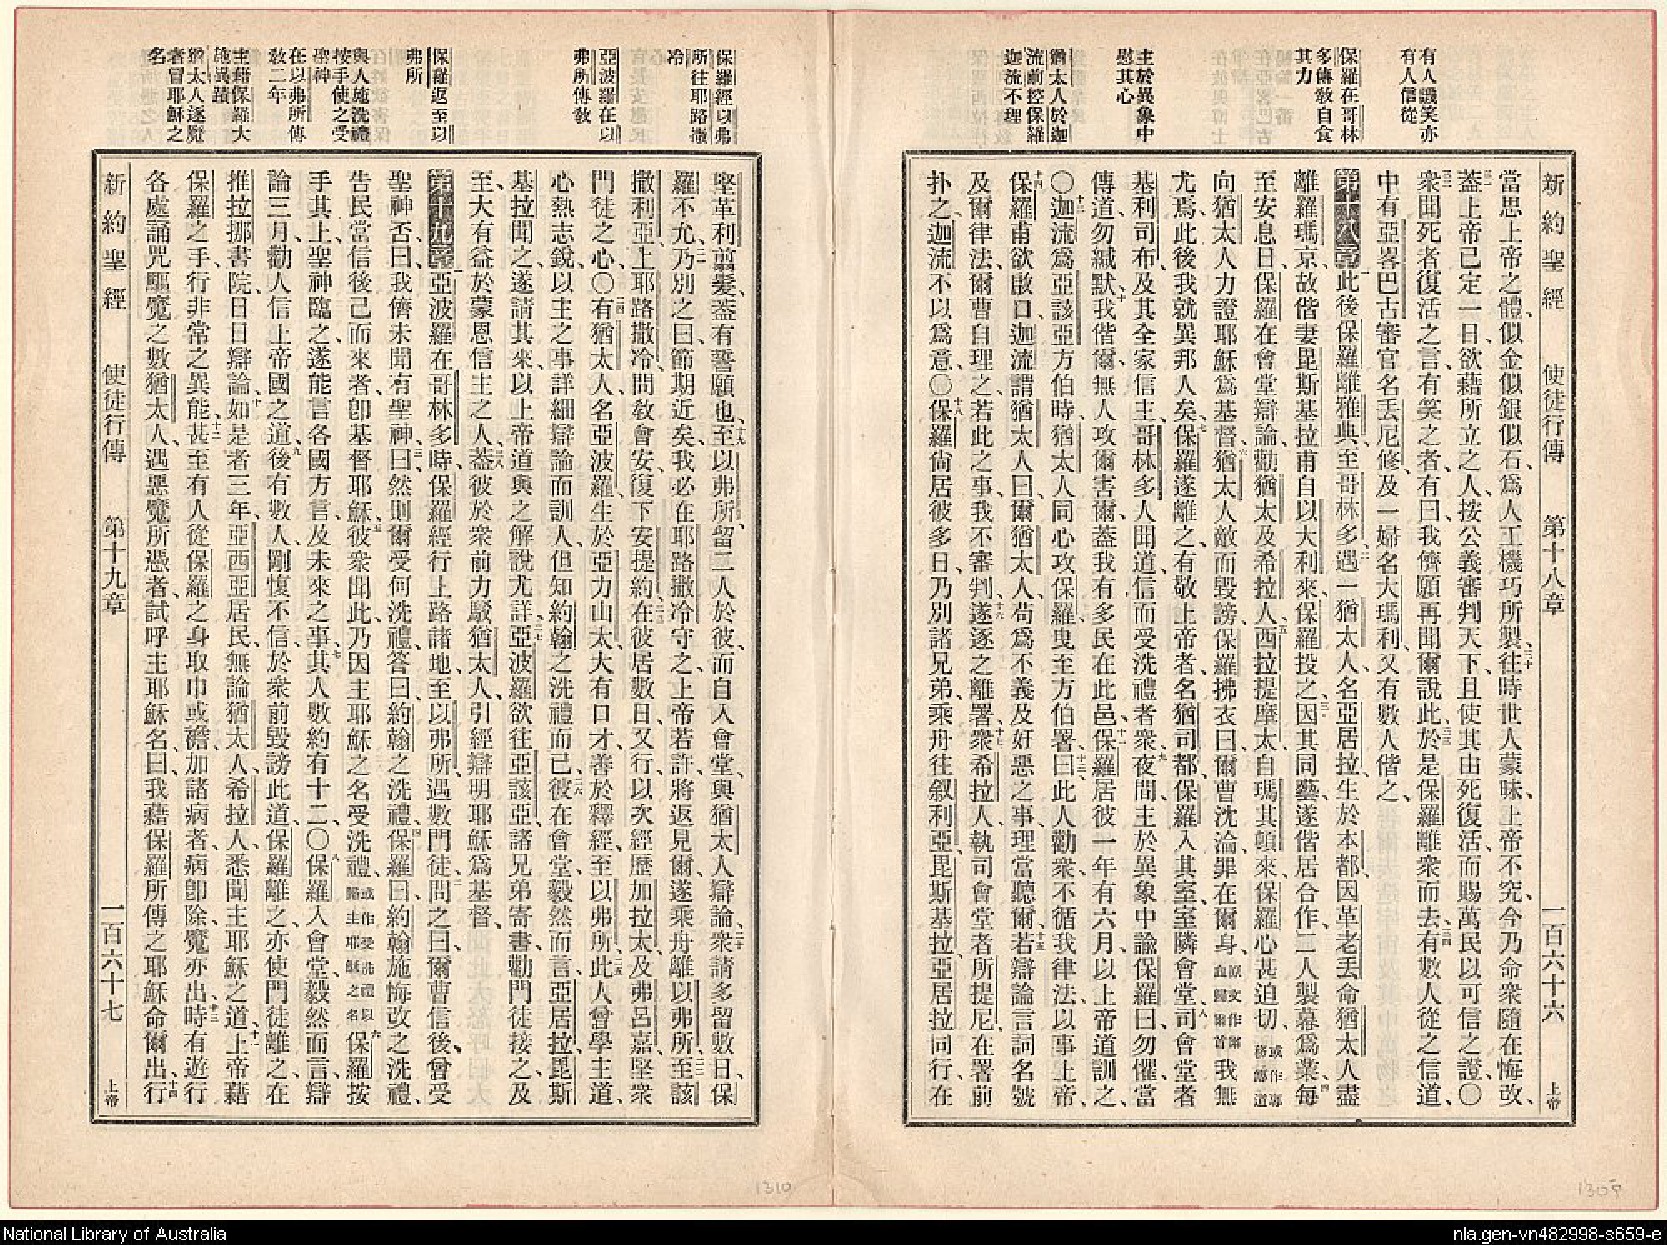 有人譏笑亦
有人信從
保羅在哥林
多傳敎自食
其力
主於異象中
慰其心
猶太人於迦
流前控保羅
迦流不理
新約聖經 使徒行傳 第十八章 一百六十六 上帝
當思上帝之體、似金似銀似石、爲人工機巧所製、三十往時世人蒙昧、上帝不究、今乃命衆隨在悔改、
三一蓋上帝已定一日、欲藉所立之人、按公義審判天下、且使其由死復活、而賜萬民以可信之證、〇
三二衆聞死者復活之言、有笑之者、有曰、我儕願再聞爾說此、三三於是保羅離衆而去、三四有數人從之信道、
中有亞畧巴古審官名丟尼修、及一婦名大瑪利、又有數人偕之、
第十八章 一此後保羅離雅典、至哥林多、二遇一猶太人、名亞居拉、生於本都、因革老丟命猶太人盡
離羅瑪京、故偕妻毘斯基拉甫自以大利來、保羅投之、三因其同藝、遂偕居合作、二人製幕爲業、四每
至安息日、保羅在會堂辯論、勸猶太及希拉人、五西拉提摩太自瑪其頓來、保羅心甚迫切、或作專務傳道
向猶太人力證耶穌爲基督、六猶太人敵而毀謗、保羅拂衣曰、爾曹沈淪、罪在爾身、原文作爾血歸爾首我無
尤焉、此後我就異邦人矣、七保羅遂離之、有敬上帝者、名猶司都、保羅入其室、室隣會堂、八司會堂者
基利司布、及其全家信主、哥林多人聞道、信而受洗禮者衆、九夜間主於異象中諭保羅曰、勿懼、當
傳道勿緘默、十我偕爾、無人攻爾害爾、蓋我有多民在此邑、十一保羅居彼一年有六月、以上帝道訓之、
〇十二迦流爲亞該亞方伯時、猶太人同心攻保羅、曳至方伯署、十三曰、此人勸衆不循我律法、以事上帝、
十四保羅甫欲啟口、迦流謂猶太人曰、爾猶太人、苟爲不義及奸惡之事、理當聽爾、十五若辯論言詞名號、
及爾律法、爾曹自理之、若此之事、我不審判、十六遂逐之離署、十七衆希拉人、執司會堂者所提尼、在署前
扑之、迦流不以爲意、〇十八保羅尙居彼多日、乃別諸兄弟、乘舟往叙利亞、毘斯基拉、亞居拉同行、在
保羅經以弗
所往耶路撒
冷
亞波羅在以
弗所傳敎
保羅返至以
弗所
與人施洗禮
按手使之受
聖神
在以弗所傳
敎二年
主藉保羅大
施異蹟
猶太人逐魔
者冒耶穌之
名
堅革利剪髮、蓋有誓願也、十九至以弗所、留二人於彼、而自入會堂、與猶太人辯論、二十衆請多留數日、保
羅不允、二一乃別之曰、節期近矣、我必在耶路撒冷守之、上帝若許、將返見爾、遂乘舟離以弗所、二二至該
撒利亞、上耶路撒冷、問敎會安、復下安提約、二三在彼居數日、又行、以次經歷加拉太及弗呂嘉、堅衆
門徒之心〇二四有猶太人名亞波羅、生於亞力山太、大有口才、善於釋經、至以弗所、二五此人曾學主道、
心熱志銳、以主之事、詳細辯論而訓人、但知約翰之洗禮而已、二六彼在會堂毅然而言、亞居拉毘斯
基拉聞之、遂請其來、以上帝道與之解說尤詳、二七亞波羅欲往亞該亞、諸兄弟寄書、勸門徒接之、及
至、大有益於蒙恩信主之人、二八蓋彼於衆前力駁猶太人、引經辯明耶穌爲基督、
第十九章 一亞波羅在哥林多時、保羅經行上路諸地、至以弗所、遇數門徒、二問之曰、爾曹信後、曾受
聖神否、曰、我儕未聞有聖神、三曰、然則爾受何洗禮、答曰、約翰之洗禮、四保羅曰、約翰施悔改之洗禮、
告民當信後己而來者、卽基督耶穌、五彼衆聞此、乃因主耶穌之名受洗禮、或作受洗禮以歸主耶穌之名六保羅按
手其上、聖神臨之、遂能言各國方言、及未來之事、七其人數約有十二、〇八保羅入會堂、毅然而言、辯
論三月、勸人信上帝國之道、九後有數人、剛愎不信、於衆前毀謗此道、保羅離之、亦使門徒離之、在
推拉挪書院、日日辯論、十如是者二年、亞西亞居民、無論猶太人希拉人、悉聞主耶穌之道、十一上帝藉
保羅之手、行非常之異能、十二甚至有人從保羅之身取巾或襜、加諸病者、病卽除、魔亦出、十三時有遊行
各處誦咒驅魔之數猶太人、遇惡魔所憑者、試呼主耶穌名、曰、我藉保羅所傳之耶穌命爾出、十四行
新約聖經 使徒行傳 第十九章 一百六十七 上帝
1310
National Library of Australia
nla.gen-vn482998-s659-e